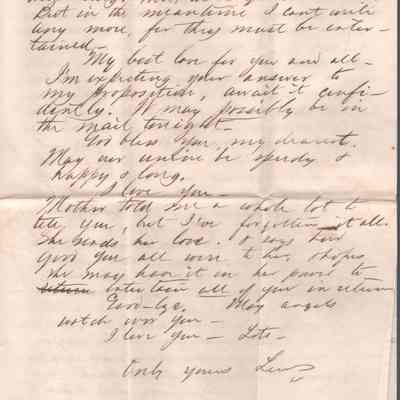 But in the meantime I can't write
any more, for they must be enter-
tained-
My best love for you and all-
I'm expecting your answer to
my proposition, await it confi-
dently. It may possibly be in
the mail tonight-
God bless you, my dearest.
May our union be speedy &
happy & long.
I love you-
Mother told me a whole lot to
tell you, but I've forgotten it all.
She sends her love. & says how
good you all were to her, & hopes
she may have it in her power to
return entertain all of you in return
Good-bye. May angels
watch over you-
I love you- Lots-
Only yours Lew